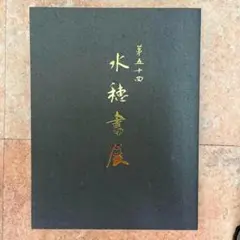 第五十四
水穂書展